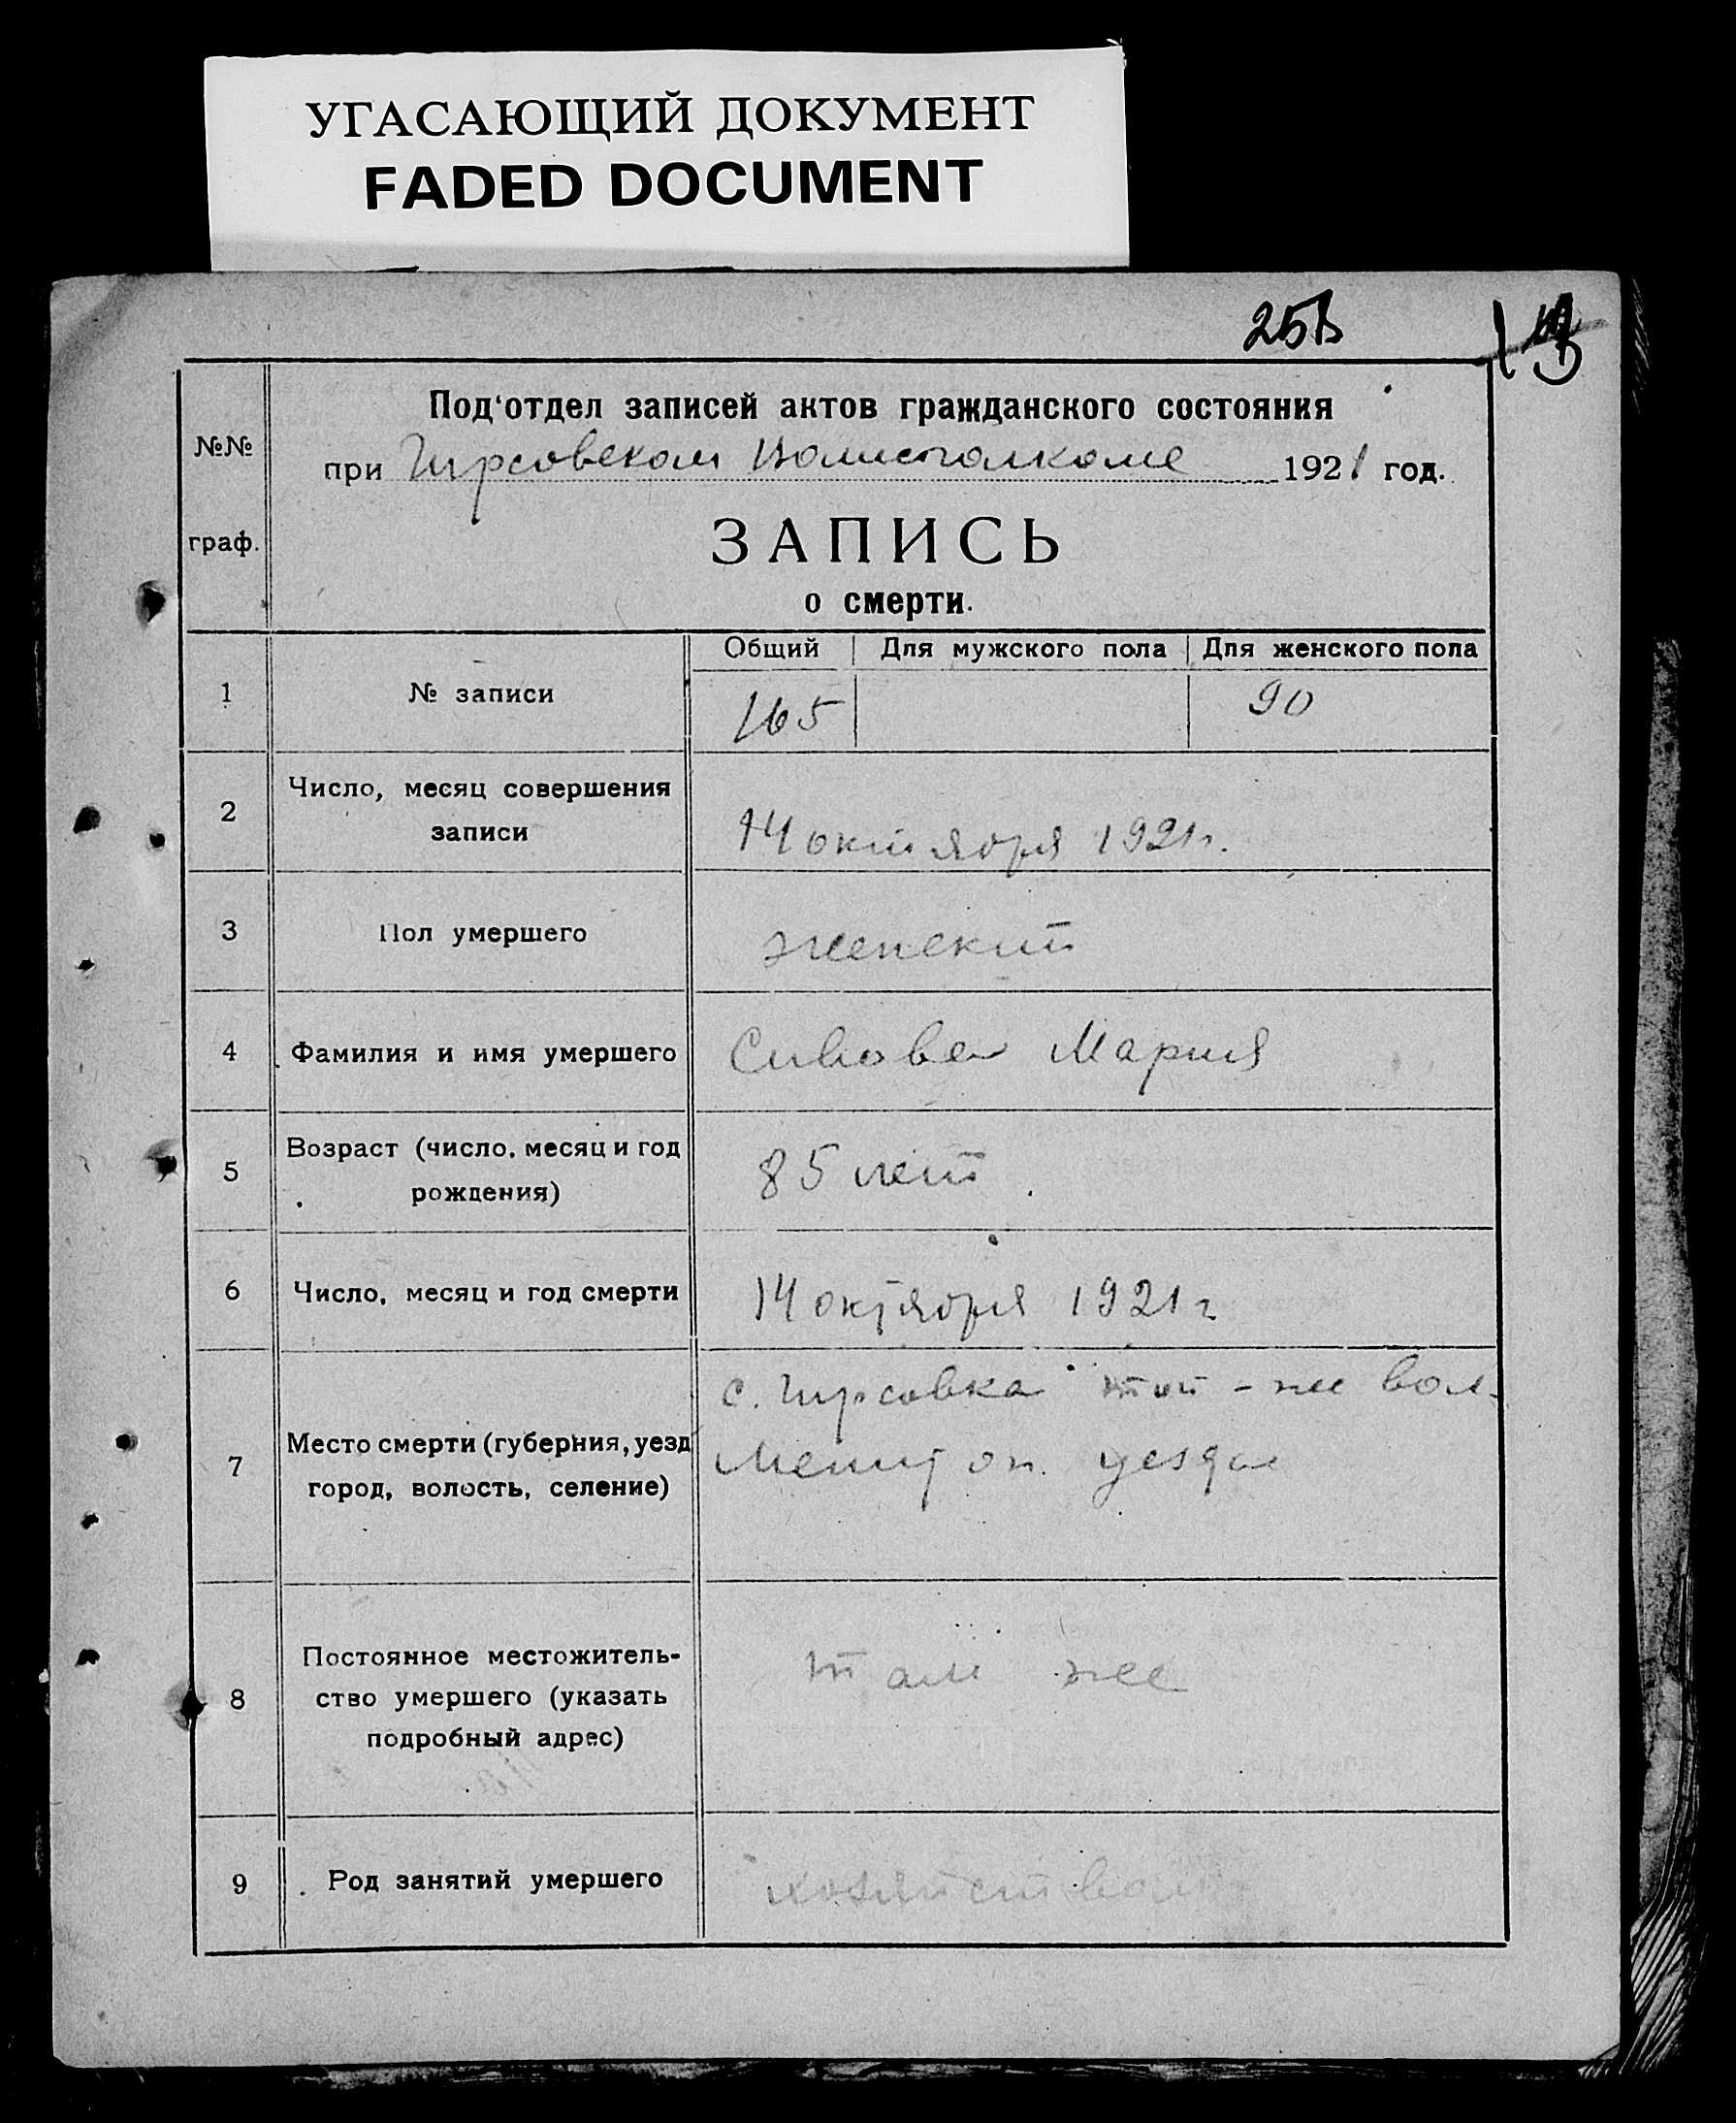 УГАСАЮЩИЙ ДОКУМЕНТ
FADED DOCUMENT
Под'отдел записей актов гражданского состояния
№№
при Гирсовском Волисполкоме 1921 год.
граф.
ЗАПИСЬ
о смерти.
Общий Для мужского пола Для женского пола
1 № записи 165 90
2 Число, месяц совершения
записи 14 октября 1921г.
3 Пол умершего женский
4 Фамилия и имя умершего Мария
5 Возраст (число, месяц и год
рождения) 85 лет
6 Число, месяц и год смерти 14 октября 1921 г
с. Гирсовка той-же вол.
7 Место смерти (губерния, уезд
город, волость, селение) уезда
8 Постоянное местожитель-
ство умершего (указать
подробный адрес) там же
9 Род занятий умершего